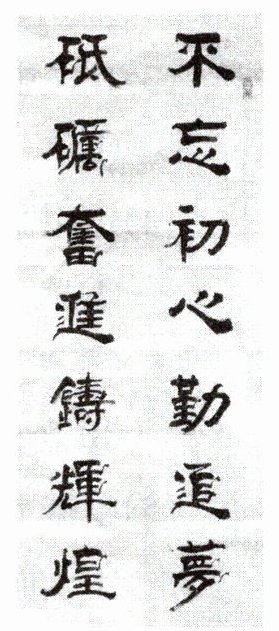 不忘初心勤追夢
砥礪奮進鑄輝煌